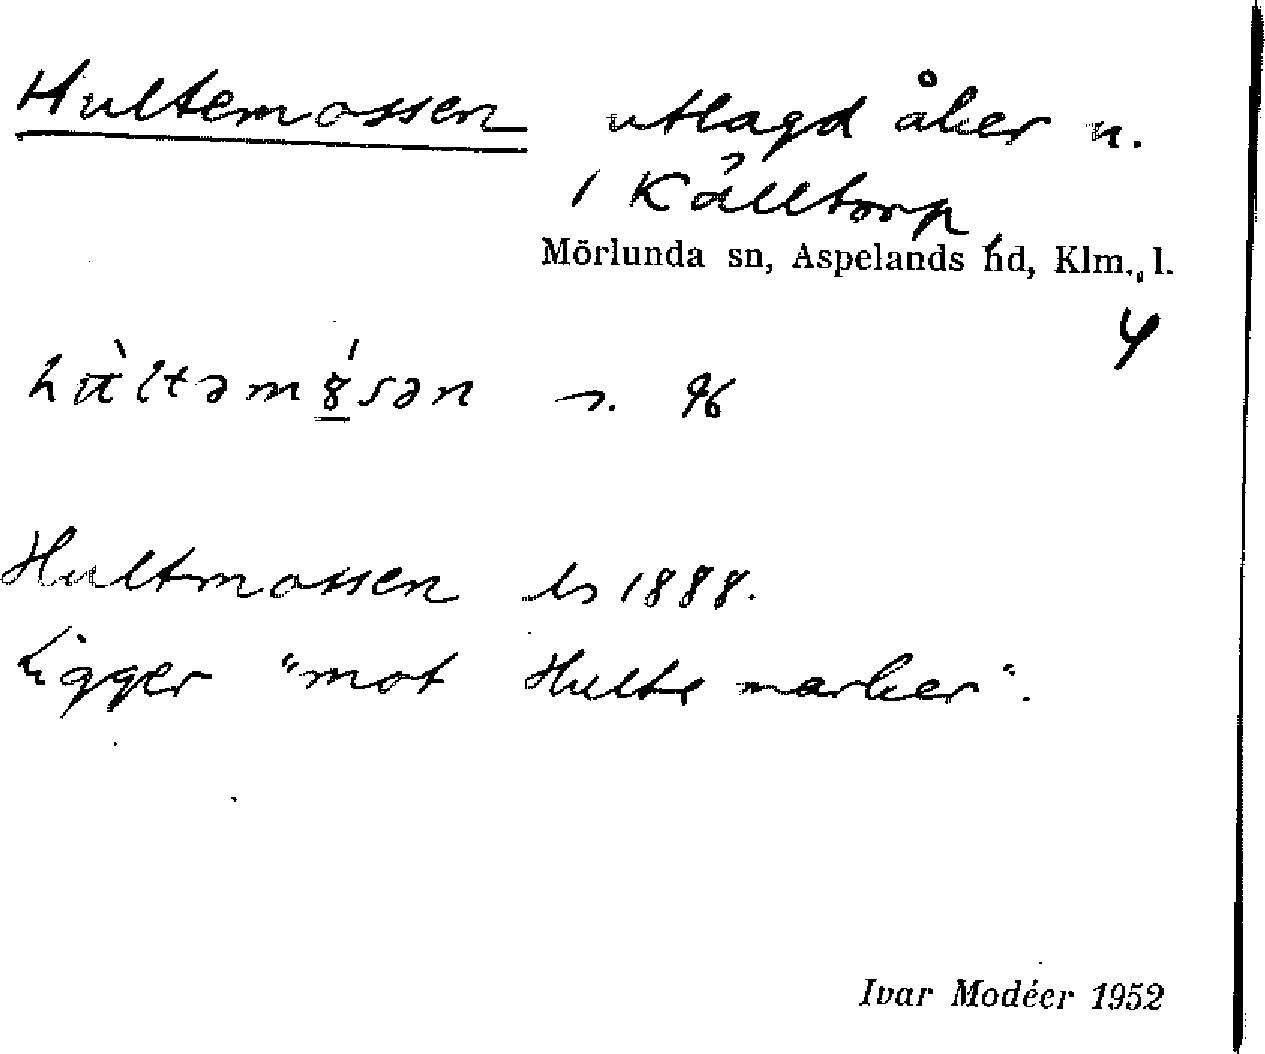 Hultemossen utlagd åker n.
1 Källtorp
Mörlunda sn, Aspelands hd, Klm. l.
4
Hultmossen ls 1888.
Ligger "mot Hulte marker".
Ivar Modéer 1952